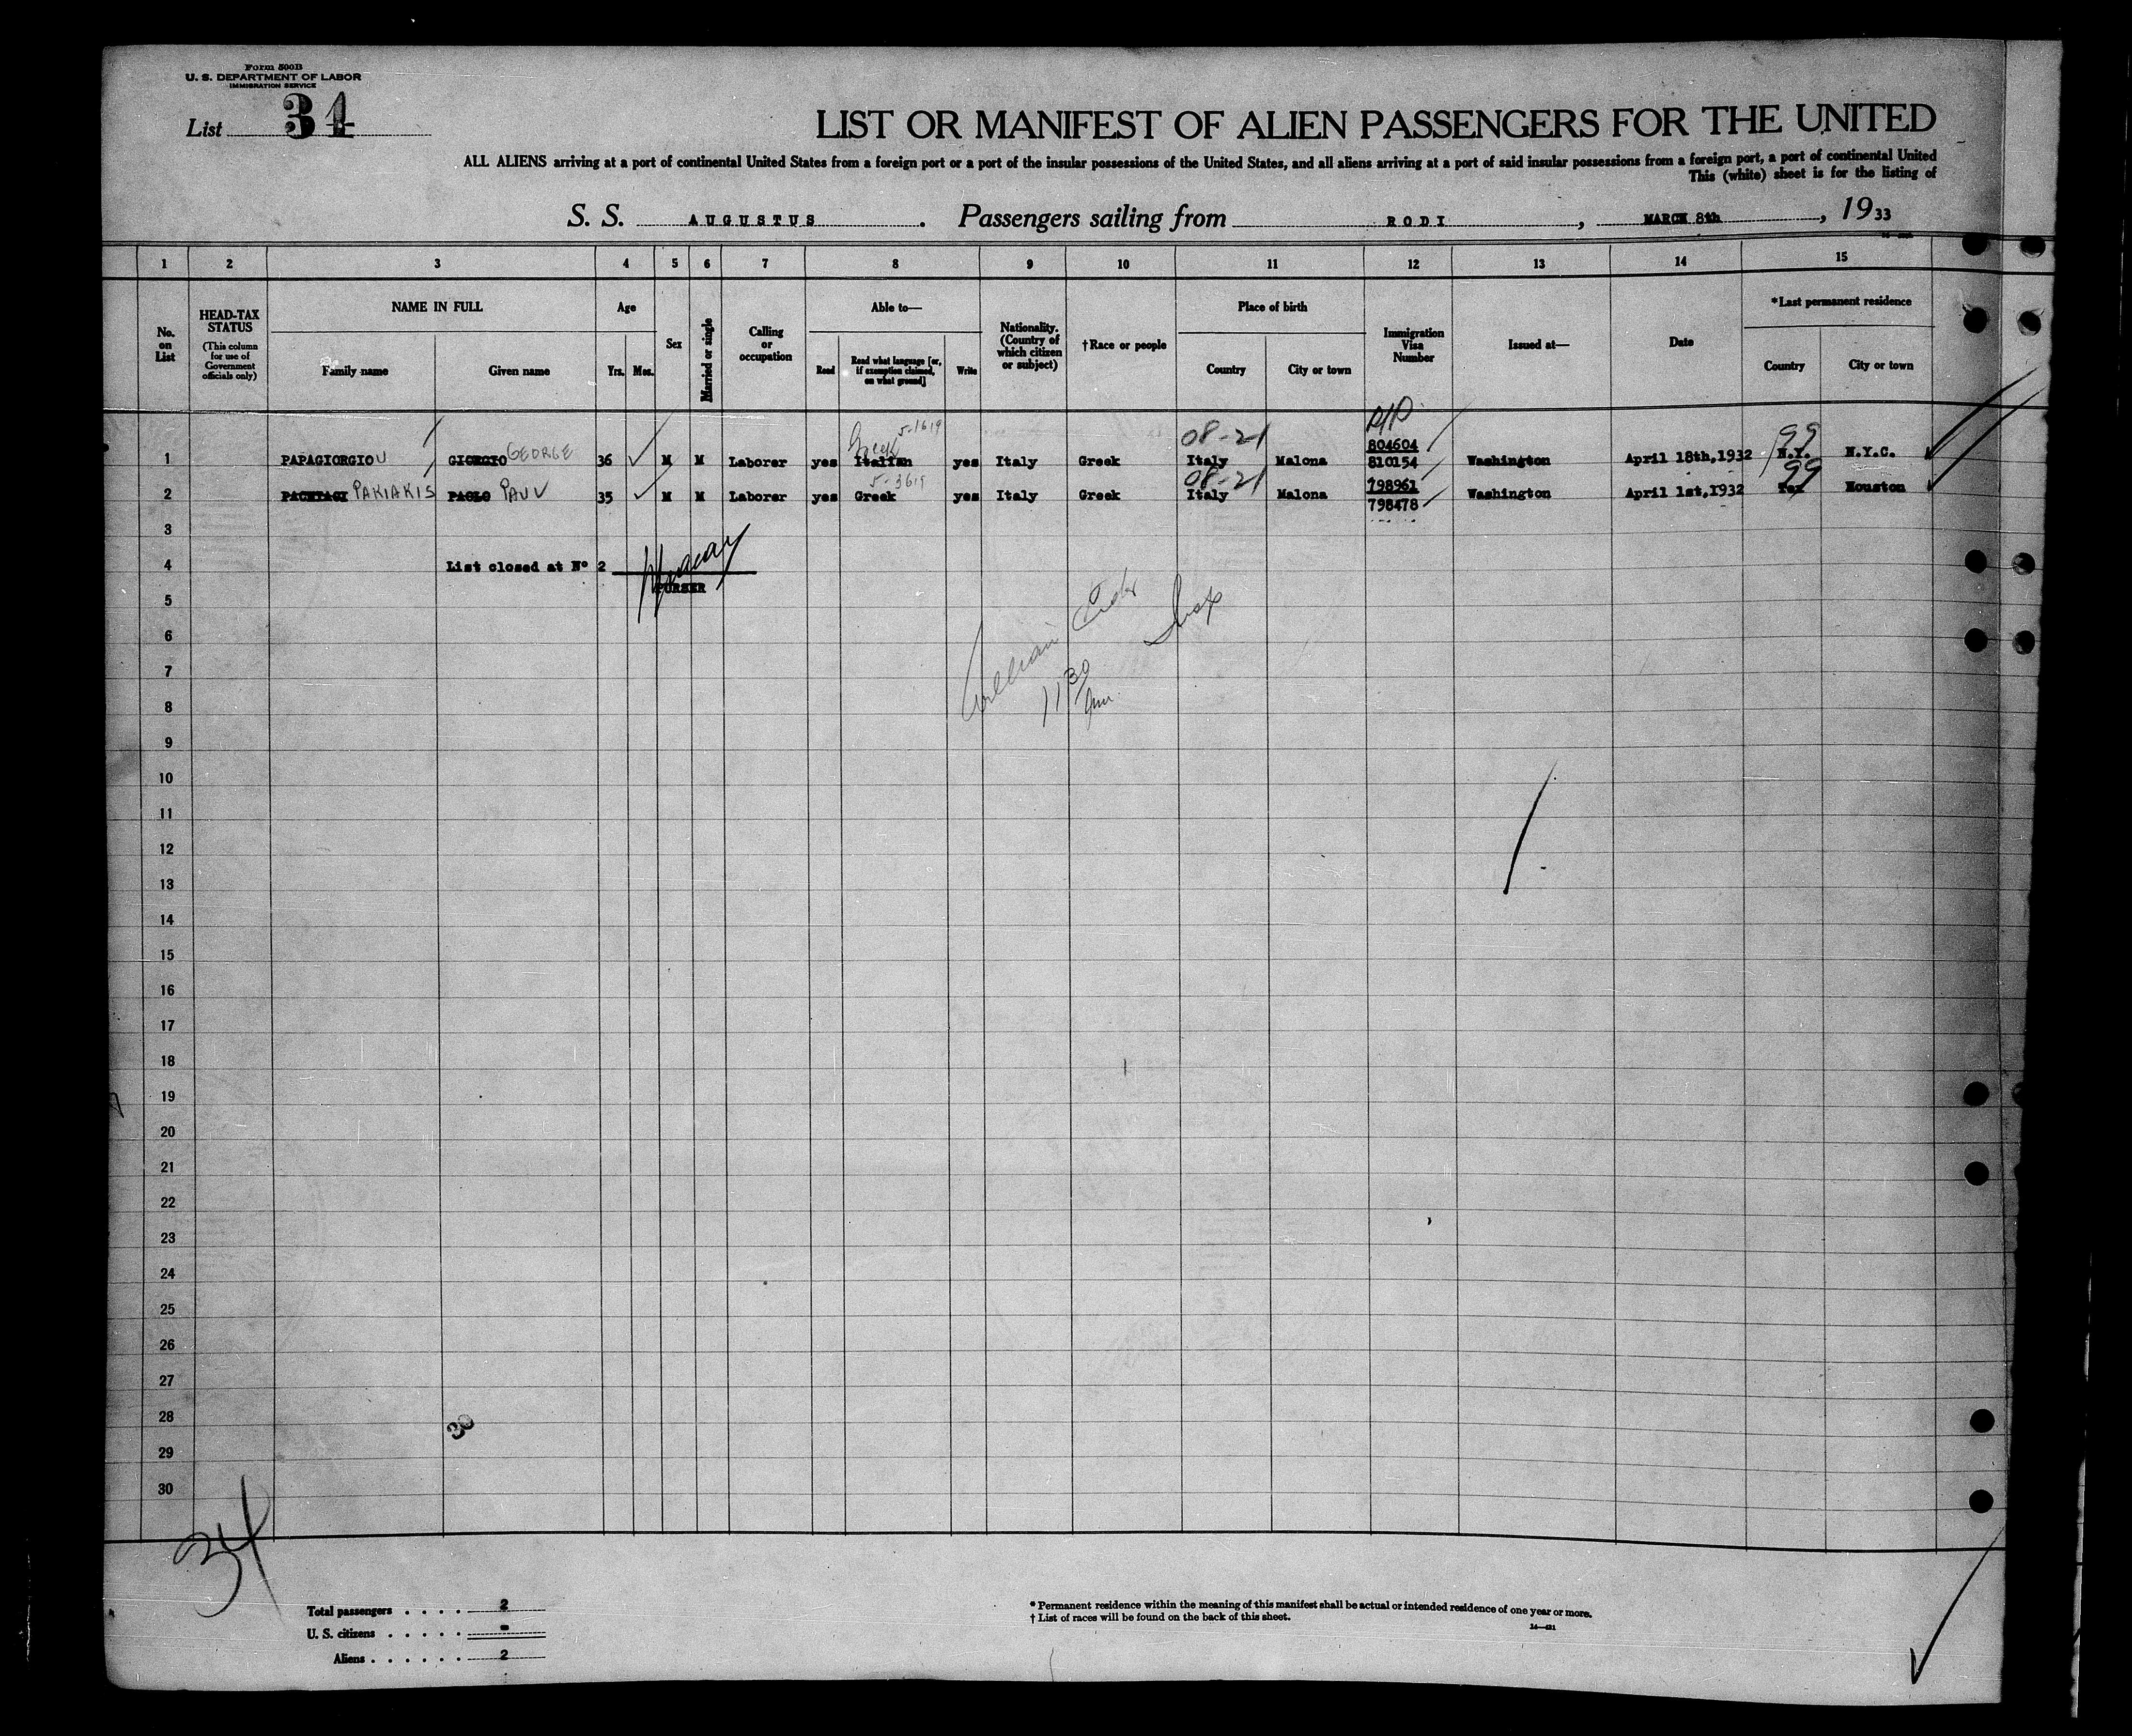 Form 500B
U. S. DEPARTMENT OF LABOR
IMMIGRATION SERVICE
List 34
LIST OR MANIFEST OF ALIEN PASSENGERS FOR THE UNITED
ALL ALIENS arriving at a port of continental United States from a foreign port or a port of the insular possessions of the United States, and all aliens arriving at a port of said insular possessions from a foreign port, a port of continental United
This (white) sheet is for the listing of
S. S. AUGUSTUS. Passengers sailing from RODI, MARCH 8th, 1933
1 2 3 4 5 6 7 8 9 10 11 12 13 14 15
No. on List
HEAD-TAX STATUS (This column for use of Government officials only)
NAME IN FULL
Family name Given name
Age
Yrs. Mos.
Sex
Married or single
Calling or occupation
Able to—
Read Read what language [or, if exemption claimed, on what ground] Write
Nationality. (Country of which citizen or subject)
†Race or people
Place of birth
Country City or town
Immigration Visa Number
Issued at—
Date
*Last permanent residence
Country City or town
Greek 5-1619 08-21 R/P 99
804604
1 PAPAGIORGIOU GIORGIO GEORGE 36 M M Laborer yes Italian yes Italy Greek Italy Malona 810154 Washington April 18th,1932 N.Y. N.Y.C.
5-3619 08-21 99
798961
2 PAKIAKIS PAOLO PAUL 35 M M Laborer yes Greek yes Italy Greek Italy Malona Washington April 1st,1932 Tex Houston
798478
3
4 List closed at Nº 2
PURSER
5
6
7
8
11 30 am
9
10
11
12
13
14
15
16
17
18
19
20
21
22
23
24
25
26
27
28
30
29
30
34
Total passengers . . . . 2
U. S. citizens . . . . . -
Aliens . . . . . . 2
* Permanent residence within the meaning of this manifest shall be actual or intended residence of one year or more.
† List of races will be found on the back of this sheet.
14—421